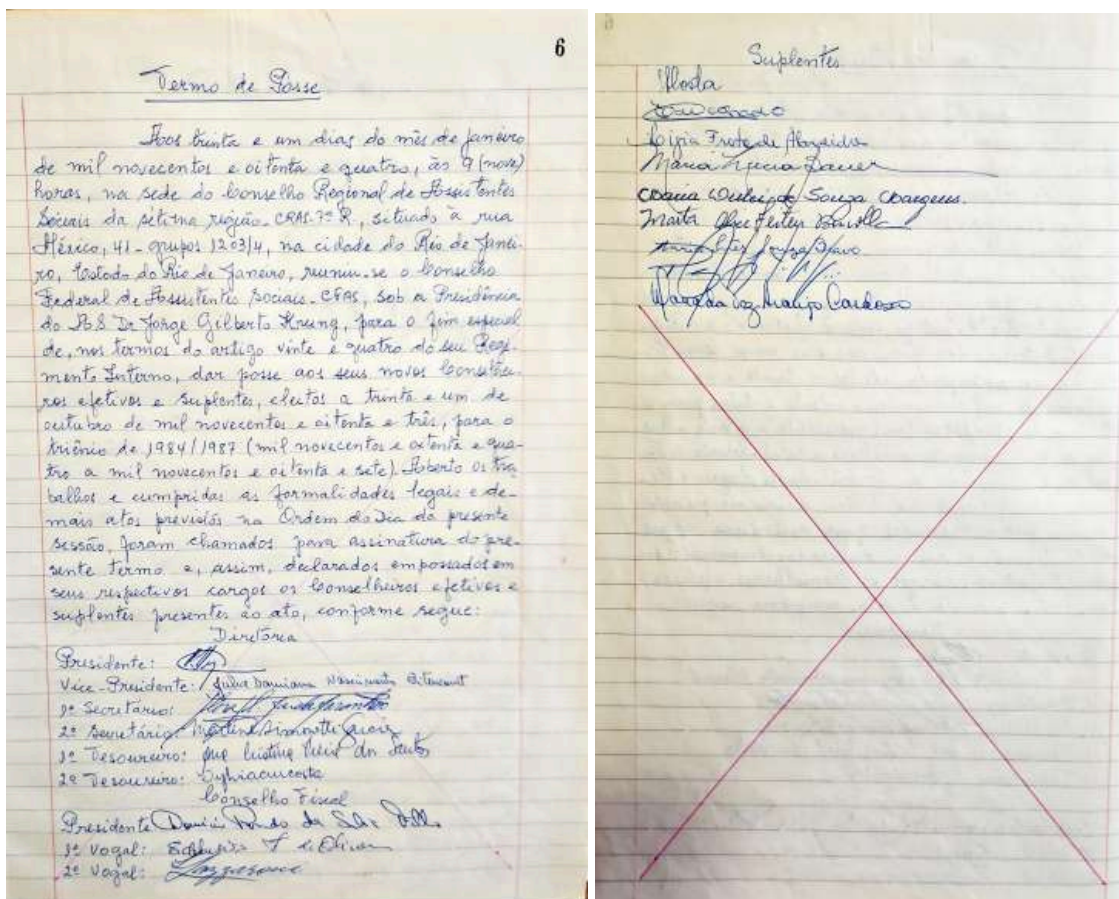 6
Termo de Posse
Aos trinta e um dias do mês de janeiro
de mil novecentos e oitenta e quatro, às 9 (nove)
horas, na sede do Conselho Regional de Assistentes
Sociais da sétima região - CRAS-7ª R, situado à rua
México, 41 - grupos 1203/4, na cidade do Rio de Janei-
ro, Estado do Rio de Janeiro, reuniu-se o Conselho
Federal de Assistentes Sociais - CFAS, sob a Presidência
do A.S. Dr Jorge Gilberto Krung, para o fim especial
de, nos termos do artigo vinte e quatro do seu Regi-
mento Interno, dar posse aos seus novos Conselhei-
ros efetivos e suplentes, eleitos a trinta e um de
outubro de mil novecentos e oitenta e três, para o
triênio de 1984/1987 (mil novecentos e oitenta e qua-
tro a mil novecentos e oitenta e sete). Aberto os tra
balhos e cumpridas as formalidades legais e de-
mais atos previstos na Ordem do Dia da presente
sessão, foram chamados para assinatura do pre-
sente termo e, assim, declarados empossados em
seus respectivos cargos os Conselheiros efetivos e
suplentes presentes ao ato, conforme segue:
Diretoria
Presidente:
Vice-Presidente: Julia Damiana Nascimento Bitencourt
1º Secretário:
2º Secretário:
1º Tesoureiro: Ana Cristina Vieira dos Santos
2º Tesoureiro:
Conselho Fiscal
Presidente da Silva
1º Vogal:
2º Vogal:
Suplentes
Ligia Frota de Almeida
Maria Lucia
Souza
Marta
Araújo Cardoso